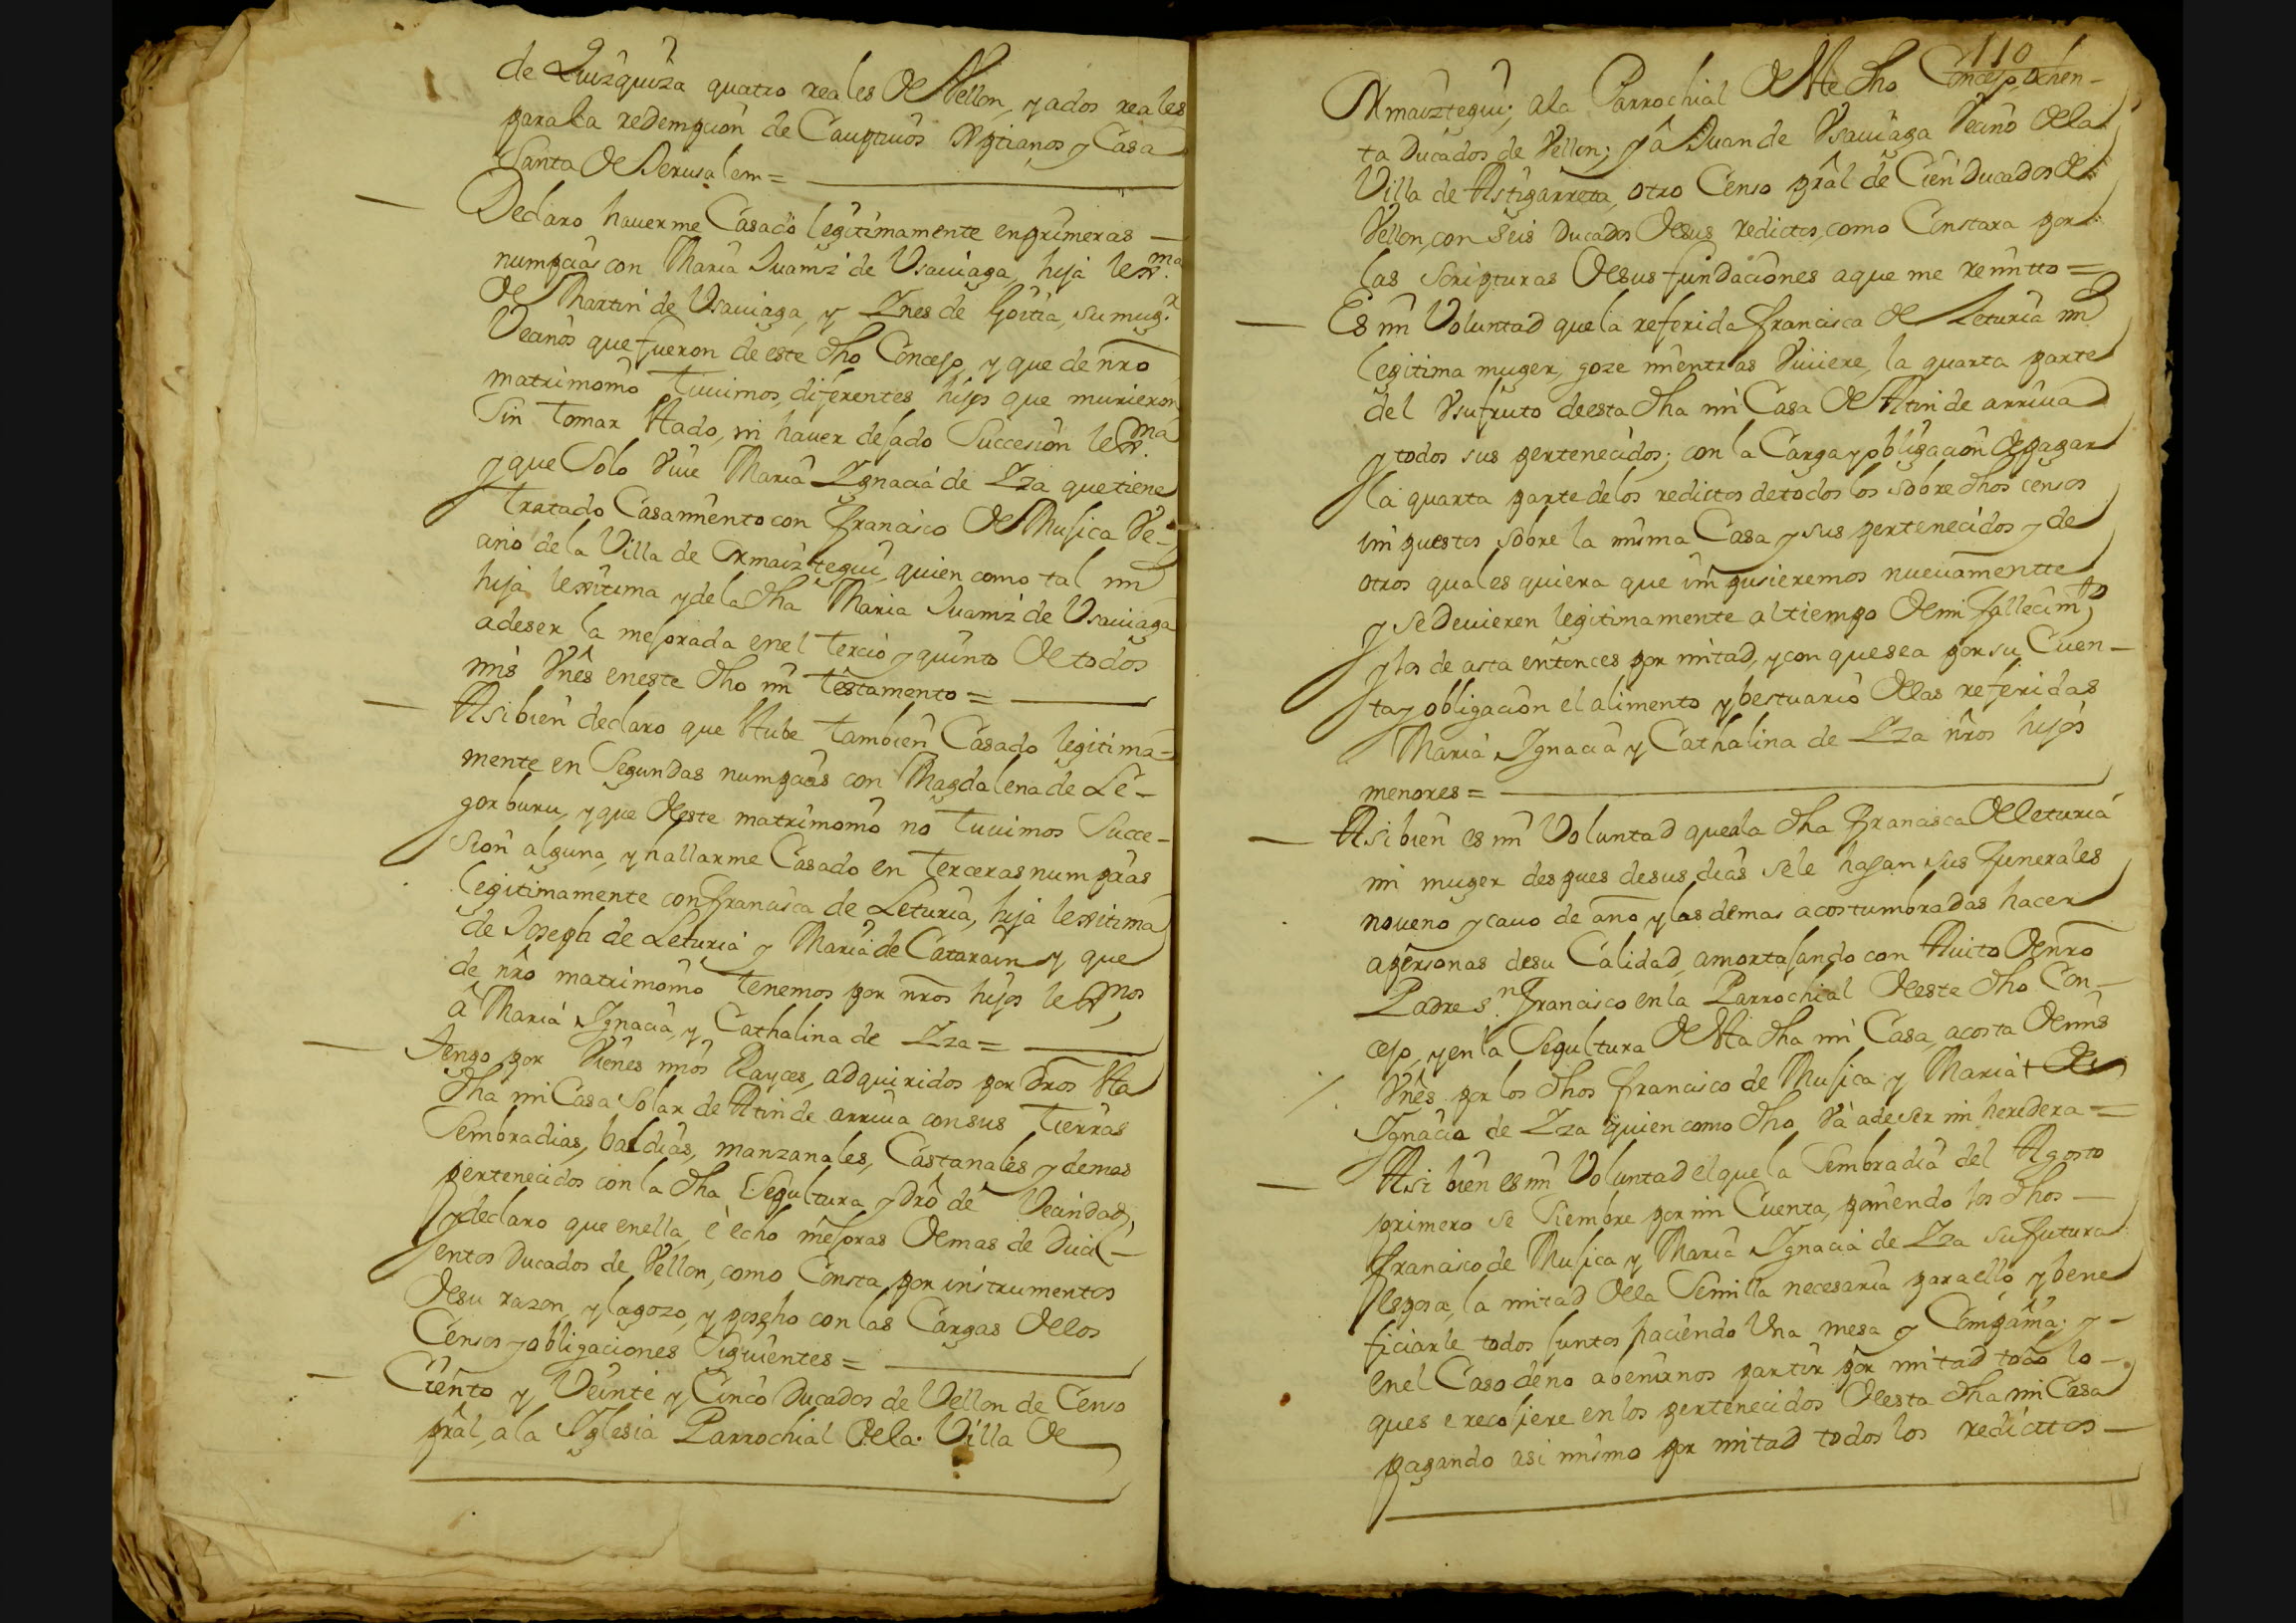 de Quizquiza quatro reales de Vellon, y a dos reales
para la redempcion de Cauptivos Xptianos y Casa
Santa de Jerusalem =
Declaro haverme Casado legitimamente en primeras
numpcias con Maria Juamiz de Usauiaga, hija lexma
de Martin de Usauiaga, y Ynes de Goitia, su mugr
Vecinos que fueron de este dho Concejo, y que de nro
matrimonio tuuimos, diferentes hijos que murieron
Sin tomar stado, ni haver dejado Succesion lexma
y que Solo Vive Maria Ygnacia de Yza que tiene
tratado Casamiento con Francisco de Mujica Ve-
cino de la Villa de Ormaiztegui, quien como tal mi
hija lexitima y de la dha Maria Juamiz de Usauiaga
a de ser la mejorada en el tercio y quinto de todos
mis Vnês en este dho mi testamento =
Asi bien declaro que stube tambien Casado legitima-
mente en Segundas numpcias con Magdalena de Le-
gorburu, y que deste matrimonio no tuuimos Succe-
sion alguna, y hallarme Casado en terceras numpcias
legitimamente con Francisca de Leturia, hija lexitima
de Joseph de Leturia y Maria de Catarain y que
de nro matrimonio tenemos por nros hijos lexmos
â Maria Ignacia, y Cathalina de Yza =
Tengo por Vienes mios Rayces, adquiridos por dros sta
dha mi Casa Solar de Atin de arriua con sus tierras
Sembradias, baldias, manzanales, Castanales y demas
pertenecidos con la dha Sepultura y drô de Vecindad,
y declaro que en ella, è echo mejoras de mas de Duci-
entos Ducados de Vellon, como Consta por instrumentos
de su razon, y la gozo, y posseho con las Cargas de los
Censos y obligaciones Siguientes =
Ciento y Veinte y Cinco Ducados de Vellon de Censo
prâl, a la Yglesia Parrochial de la Villa de
110
Ormaiztegui; a la Parrochial de ste dho Concejo, ochen-
ta Ducados de Vellon; y â Juan de Usauiaga Vecino de la
Villa de Astigarreta, otro Censo prâl de Cien Ducados de
Vellon, con seis Ducados de sus redictos, como Constara por
las Scripturas de sus fundaciones a que me remitto =
Es mi Voluntad que la referida Francisca de Leturia mi
legitima muger, goze mientras Viuiere, la quarta parte
del Vsufruto de esta dha mi Casa de Atin de arriua
y todos sus pertenecidos; con la Carga y obligacion de pagar
la quarta parte de los redictos de todos los sobre dhos censos
impuestos sobre la misma Casa y sus pertenecidos y de
otros quales quiera que impusieremos nueuamentte
y se Deuieren legitimamente al tiempo de mi fallecimto
y los de asta entonces por mitad, y con que sea por su Cuen-
ta y obligacion el alimento y bestuario de las referidas
Maria Ignacia y Cathalina de Yza nros hijos
menores =
Asi bien es mi Voluntad que a la dha Francisca de Leturia
mi muger despues de sus dias se le hagan sus funerales
noveno y cauo de año y las demas acostumbradas hacer
a personas de su Calidad, amortajando con Auito de nro
Padre Sn Francisco en la Parrochial deste dho Con-
cejo, y en la Sepultura de sta dha mi Casa, acosta de mis
Vnês por los dhos Francisco de Mujica y Maria
Ignacia de Yza quien como dho Va a de ser mi heredera =
Asi bien es mi Voluntad el que la Sembradia del Agosto
primero se Siembre por mi Cuenta, poniendo los dhos
Francisco de Mujica y Maria Ignacia de Yza su futura
esposa, la mitad de la Semilla necesaria para ello, y bene
ficiarle todos juntos haciendo Una mesa y Compâñia; y
en el Caso de no abenirnos partir por mitad todo lo
que se recojiere en los pertenecidos desta dha mi Casa
pagando asi mismo por mitad todos los redicttos